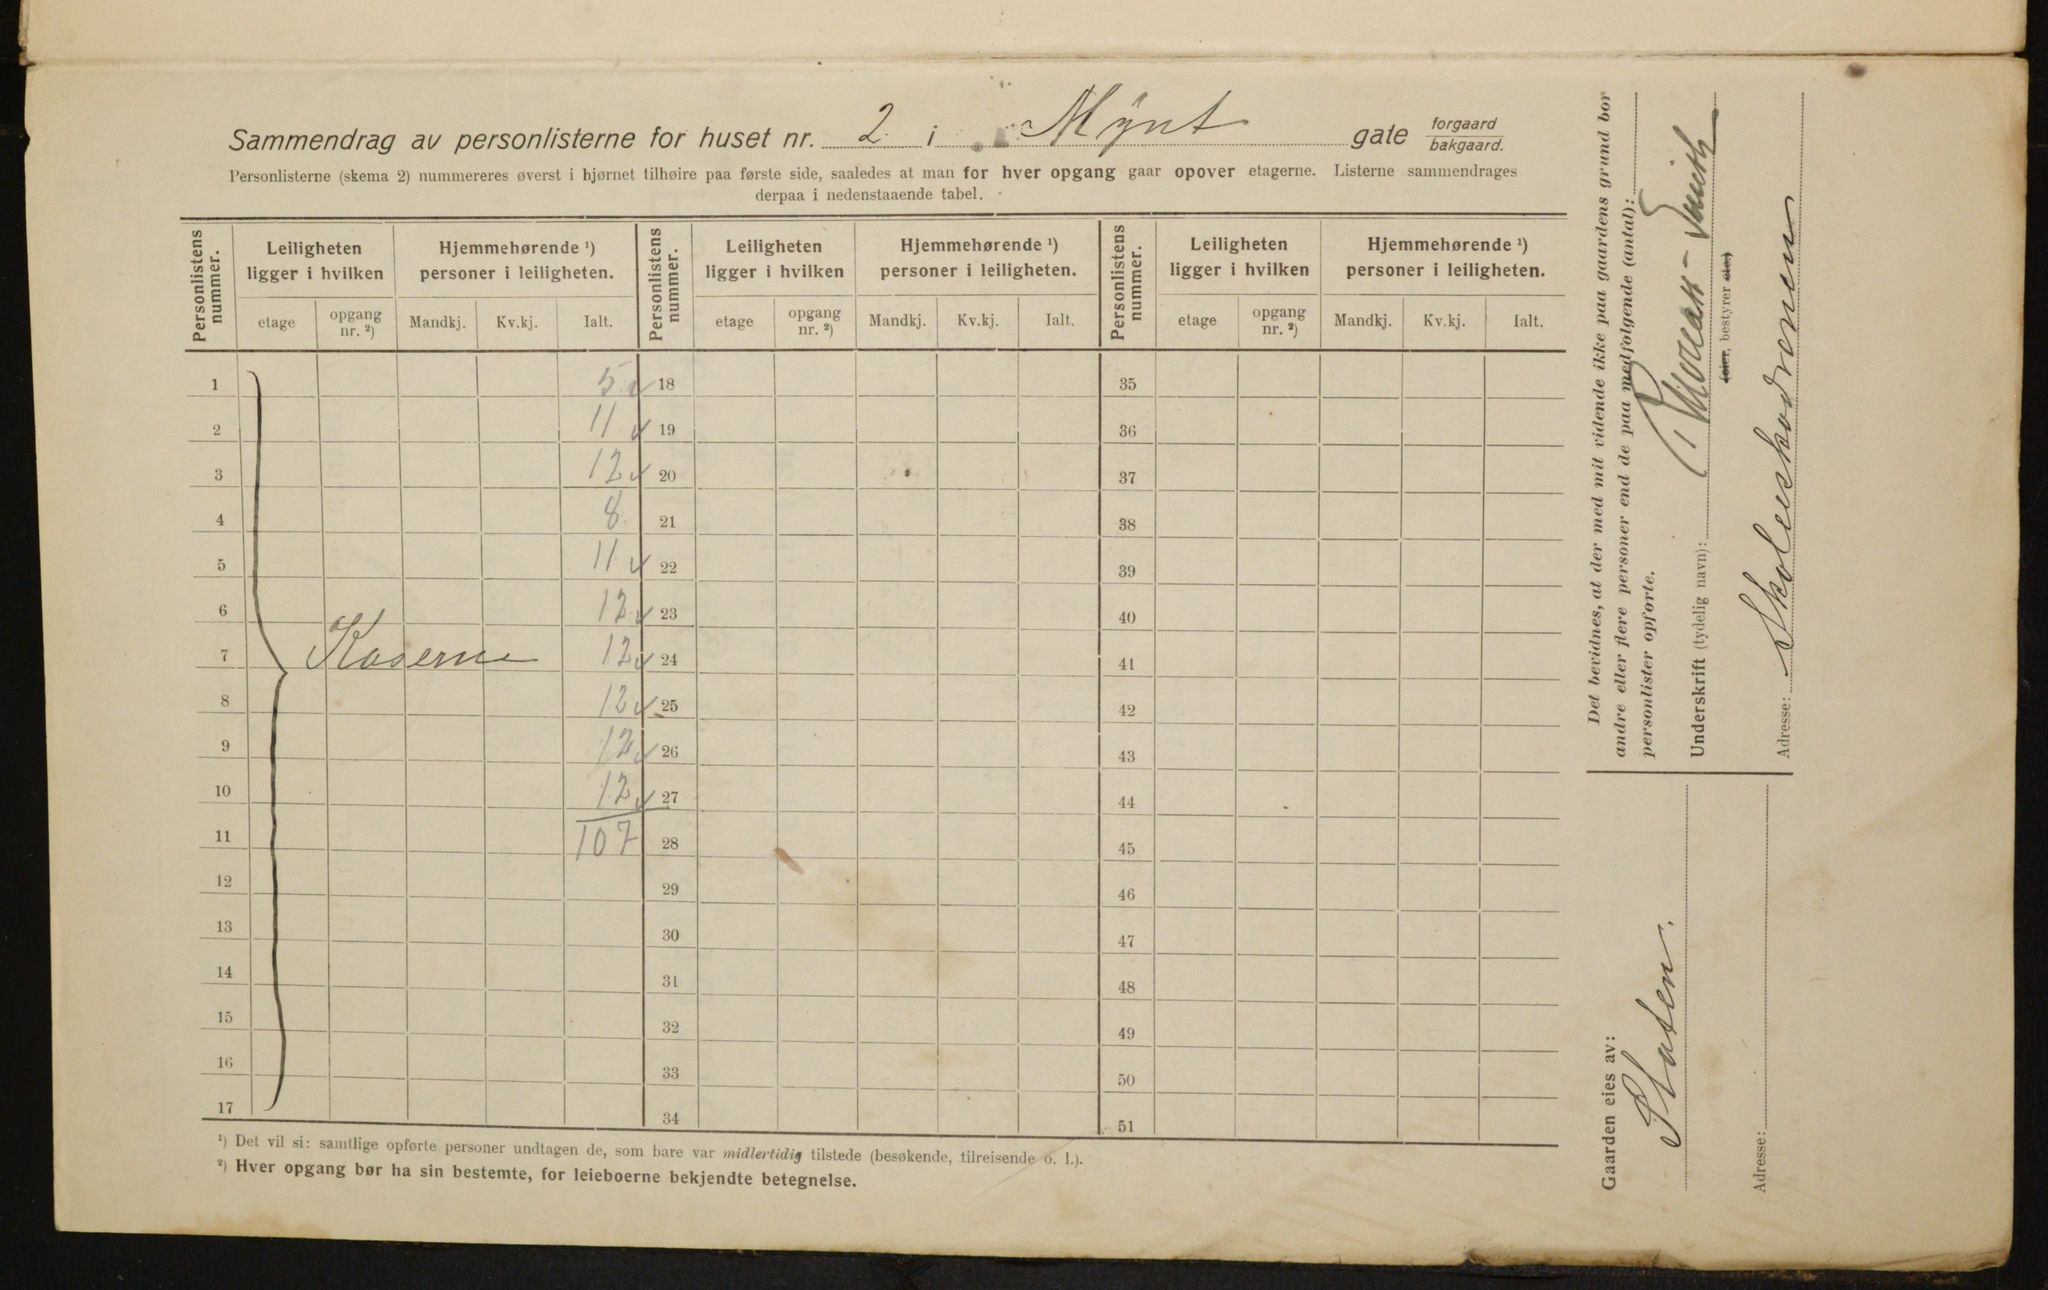 Sammendrag av personlisterne for huset nr. 2 i Mynt gate forgaard bakgaard.
Personlisterne (skema 2) nummereres øverst i hjørnet tilhøire paa første side, saaledes at man for hver opgang gaar opover etagerne. Listerne sammendrages
derpaa i nedenstaaende tabel.
Personlistens nummer. Leiligheten ligger i hvilken Hjemmehørende ¹) personer i leiligheten. Personlistens nummer. Leiligheten ligger i hvilken Hjemmehørende ¹) personer i leiligheten. Personlistens nummer. Leiligheten ligger i hvilken Hjemmehørende ¹) personer i leiligheten.
etage opgang nr. ²) Mandkj. Kv.kj. Ialt. etage opgang nr. ²) Mandkj. Kv.kj. Ialt. etage opgang nr. ²) Mandkj. Kv.kj. Ialt.
1 5 18 35
2 11 19 36
3 12 20 37
4 8 21 38
5 11 22 39
6 12 23 40
7 Kaserne 12 24 41
8 12 25 42
9 12 26 43
10 12 27 44
11 107 28 45
12 29 46
13 30 47
14 31 48
15 32 49
16 33 50
17 34 51
¹) Det vil si: samtlige opførte personer undtagen de, som bare var midlertidig tilstede (besøkende, tilreisende o. l.).
²) Hver opgang bør ha sin bestemte, for leieboerne bekjendte betegnelse.
Det bevidnes, at der med mit vidende ikke paa gaardens grund bor
andre eller flere personer end de paa medfølgende (antal):
personlister opførte.
Underskrift (tydelig navn): Smith
(eier, bestyrer etc.)
Adresse:
Gaarden eies av:
Staten.
Adresse: